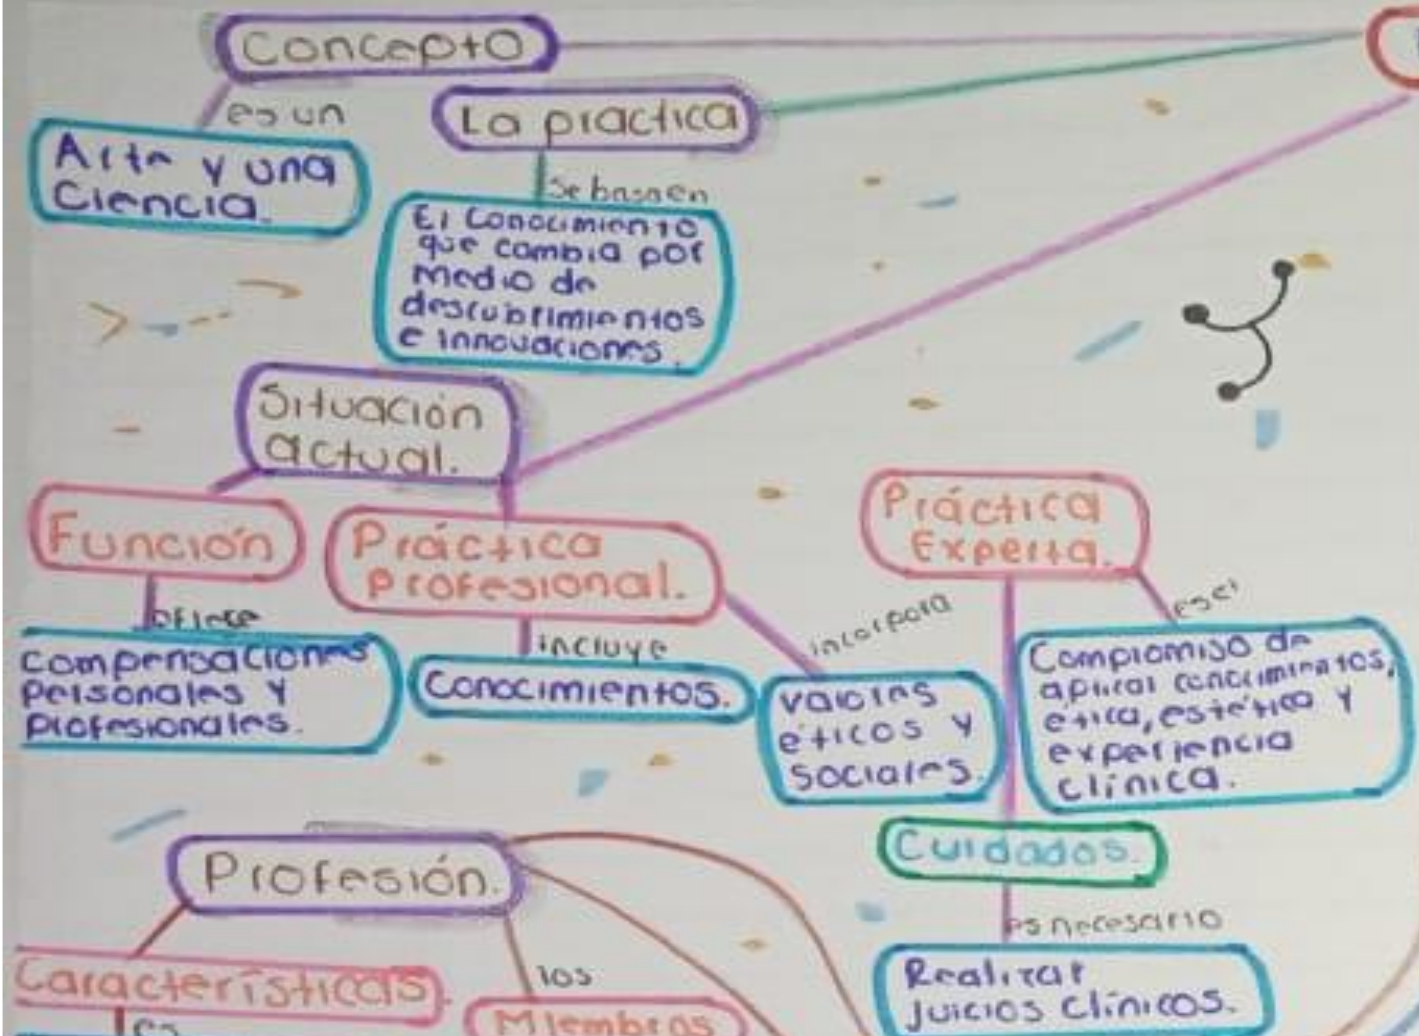 Concepto
es un
Arte y una
Ciencia.
La practica
se basa en
El Conocimiento
que cambia por
medio de
descubrimientos
e innovaciones.
Situación
actual.
Función
ofrece
Compensaciones
personales y
profesionales.
Práctica
profesional.
incluye
Conocimientos.
incorpora
valores
éticos y
sociales.
Práctica
Experta.
es el
Compromiso de
aplicar conocimientos,
etica, estética y
experiencia
clínica.
Cuidados.
es necesario
Realizar
juicios clínicos.
Profesión.
Características.
es
los
Miembros